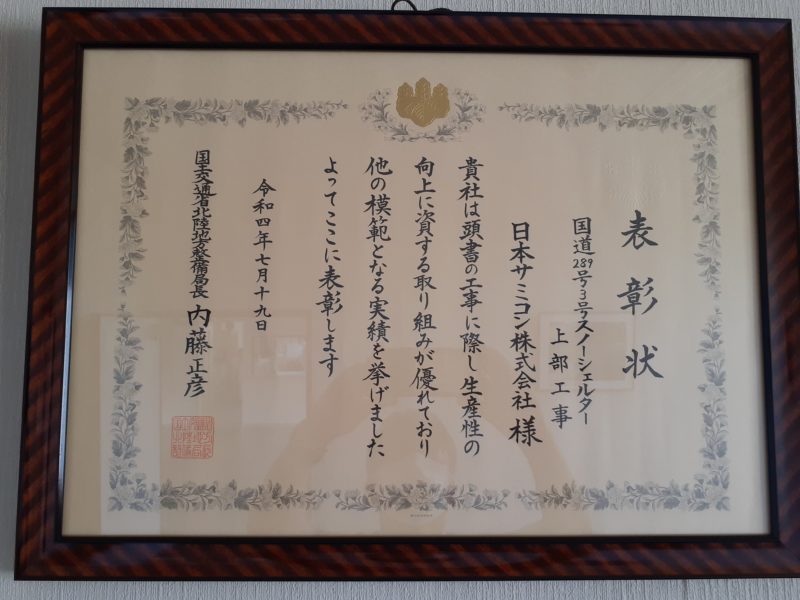 表彰状
国道289号3号スノーシェルター
上部工事
日本サミコン株式会社 様
貴社は頭書の工事に際し生産性の
向上に資する取り組みが優れており
他の模範となる実績を挙げました
よってここに表彰します
令和四年七月十九日
国土交通省北陸地方整備局長 内藤正彦